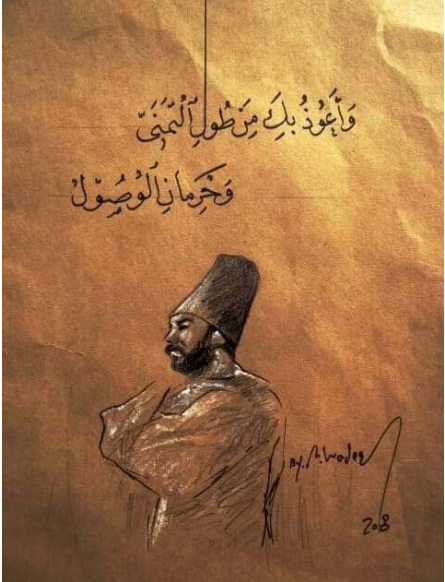 وَأَعُوْذُ بِكَ مِنْ طُولِ ٱلْتَّمَنِّيّ
وَحِرِمانِ ٱلْوُصُوْلْ
By.
2018